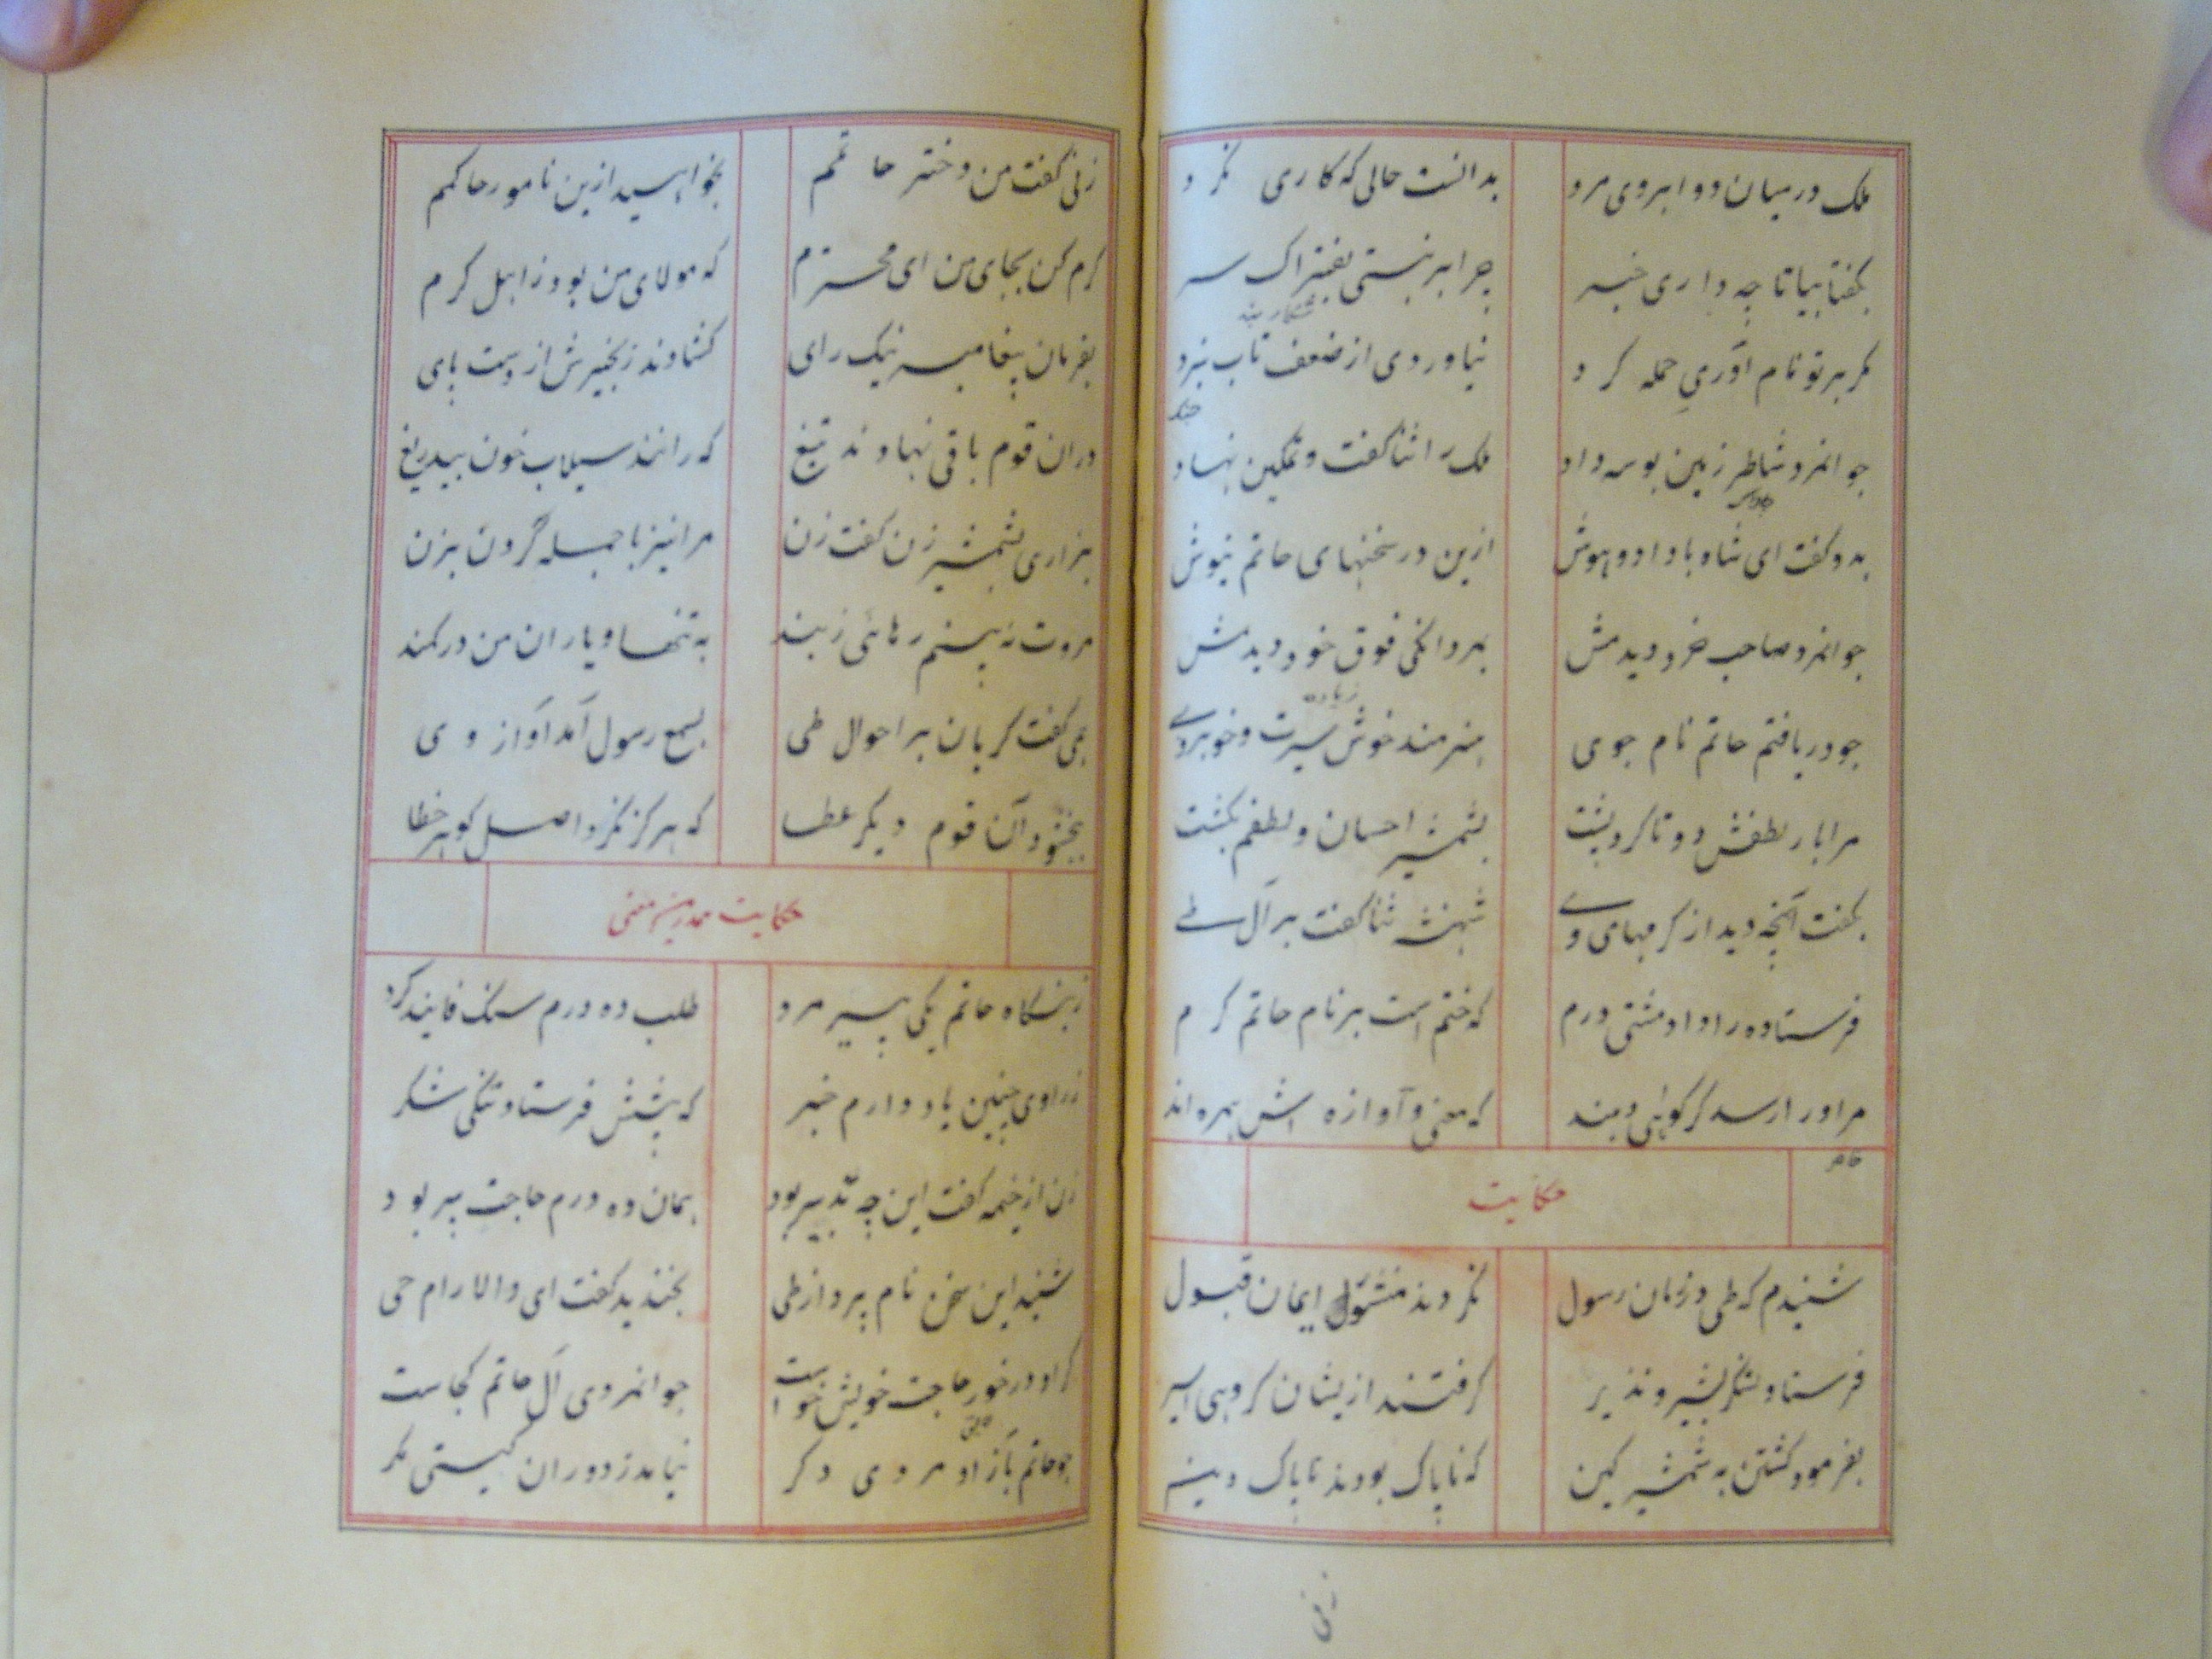 ملک در میان دو ابروی مرد بدانست حالی که کاری نکرد
بگفتا بیا تا چه داری خبر چرا سر نبستی بفتراک بر
مگر بر تو نام آوری حمله کرد نیاوردی از ضعف تاب نبرد
جوانمرد شاطر زمین بوسه داد ملک را ثنا گفت و تمکین نهاد
بدو گفت ای شاه با داد و هوش ازین در سخنهای حاتم نیوش
جوانمرد صاحب خرد دیدمش بمردانگی فوق خود دیدمش
زیاده
چو دریافتم حاتم نام جوی هنرمند خوش سیرت و خوبروی
مرا بار لطفش دو تا کرد پشت بشمشیر احسان و لطفم بکشت
بگفت آنچه دید از کرمهای وی شهنشه ثنا گفت بر آل طی
فرستاده را داد مشتی درم که ختم است بر نام حاتم کرم
مر او را رسد گر گواهی دهند که معنی و آوازه اش همره اند
حکایت
شنیدم که طی در زمان رسول نکردند منشور ایمان قبول
فرستاد لشکر بشیر و نذیر گرفتند ازیشان گروهی اسیر
بفرمود کشتن به شمشیر کین که ناپاک بودند ناپاک دین
زنی
زنی گفت من دختر حاتمم بخواهید ازین نامور حاکمم
کرم کن بجای من ای محترم که مولای من بود ز اهل کرم
بفرمان پیغامبر نیک رای گشادند زنجیرش از دست پای
دران قوم باقی نهادند تیغ که رانند سیلاب خون بیدریغ
بزاری بشمشیر زن گفت زن مرا نیز با جمله گردن بزن
مروت نه بینم رهائی ز بند به تنها و یاران من در کمند
همی گفت گریان بر احوال طی بسمع رسول آمد آواز وی
ببخشود آن قوم دیگر عطا که هرگز نکرد اصل گوهر خطا
حکایت
ز بنگاه حاتم یکی پیر مرد طلب ده درم سنگ فانید کرد
ز راوی چنین یاد دارم خبر که پیشش فرستاد تنگی شکر
زن از خیمه گفت این چه تدبیر بود همان ده درم حاجت پیر بود
شنید این سخن نام بردار طی بخندید گفت ای دلارام حی
گر او در خور حاجت خویش خواست جوانمردی آل حاتم کجاست
چو حاتم بآزاد مردی دگر نیامد ز دوران گیتی مگر